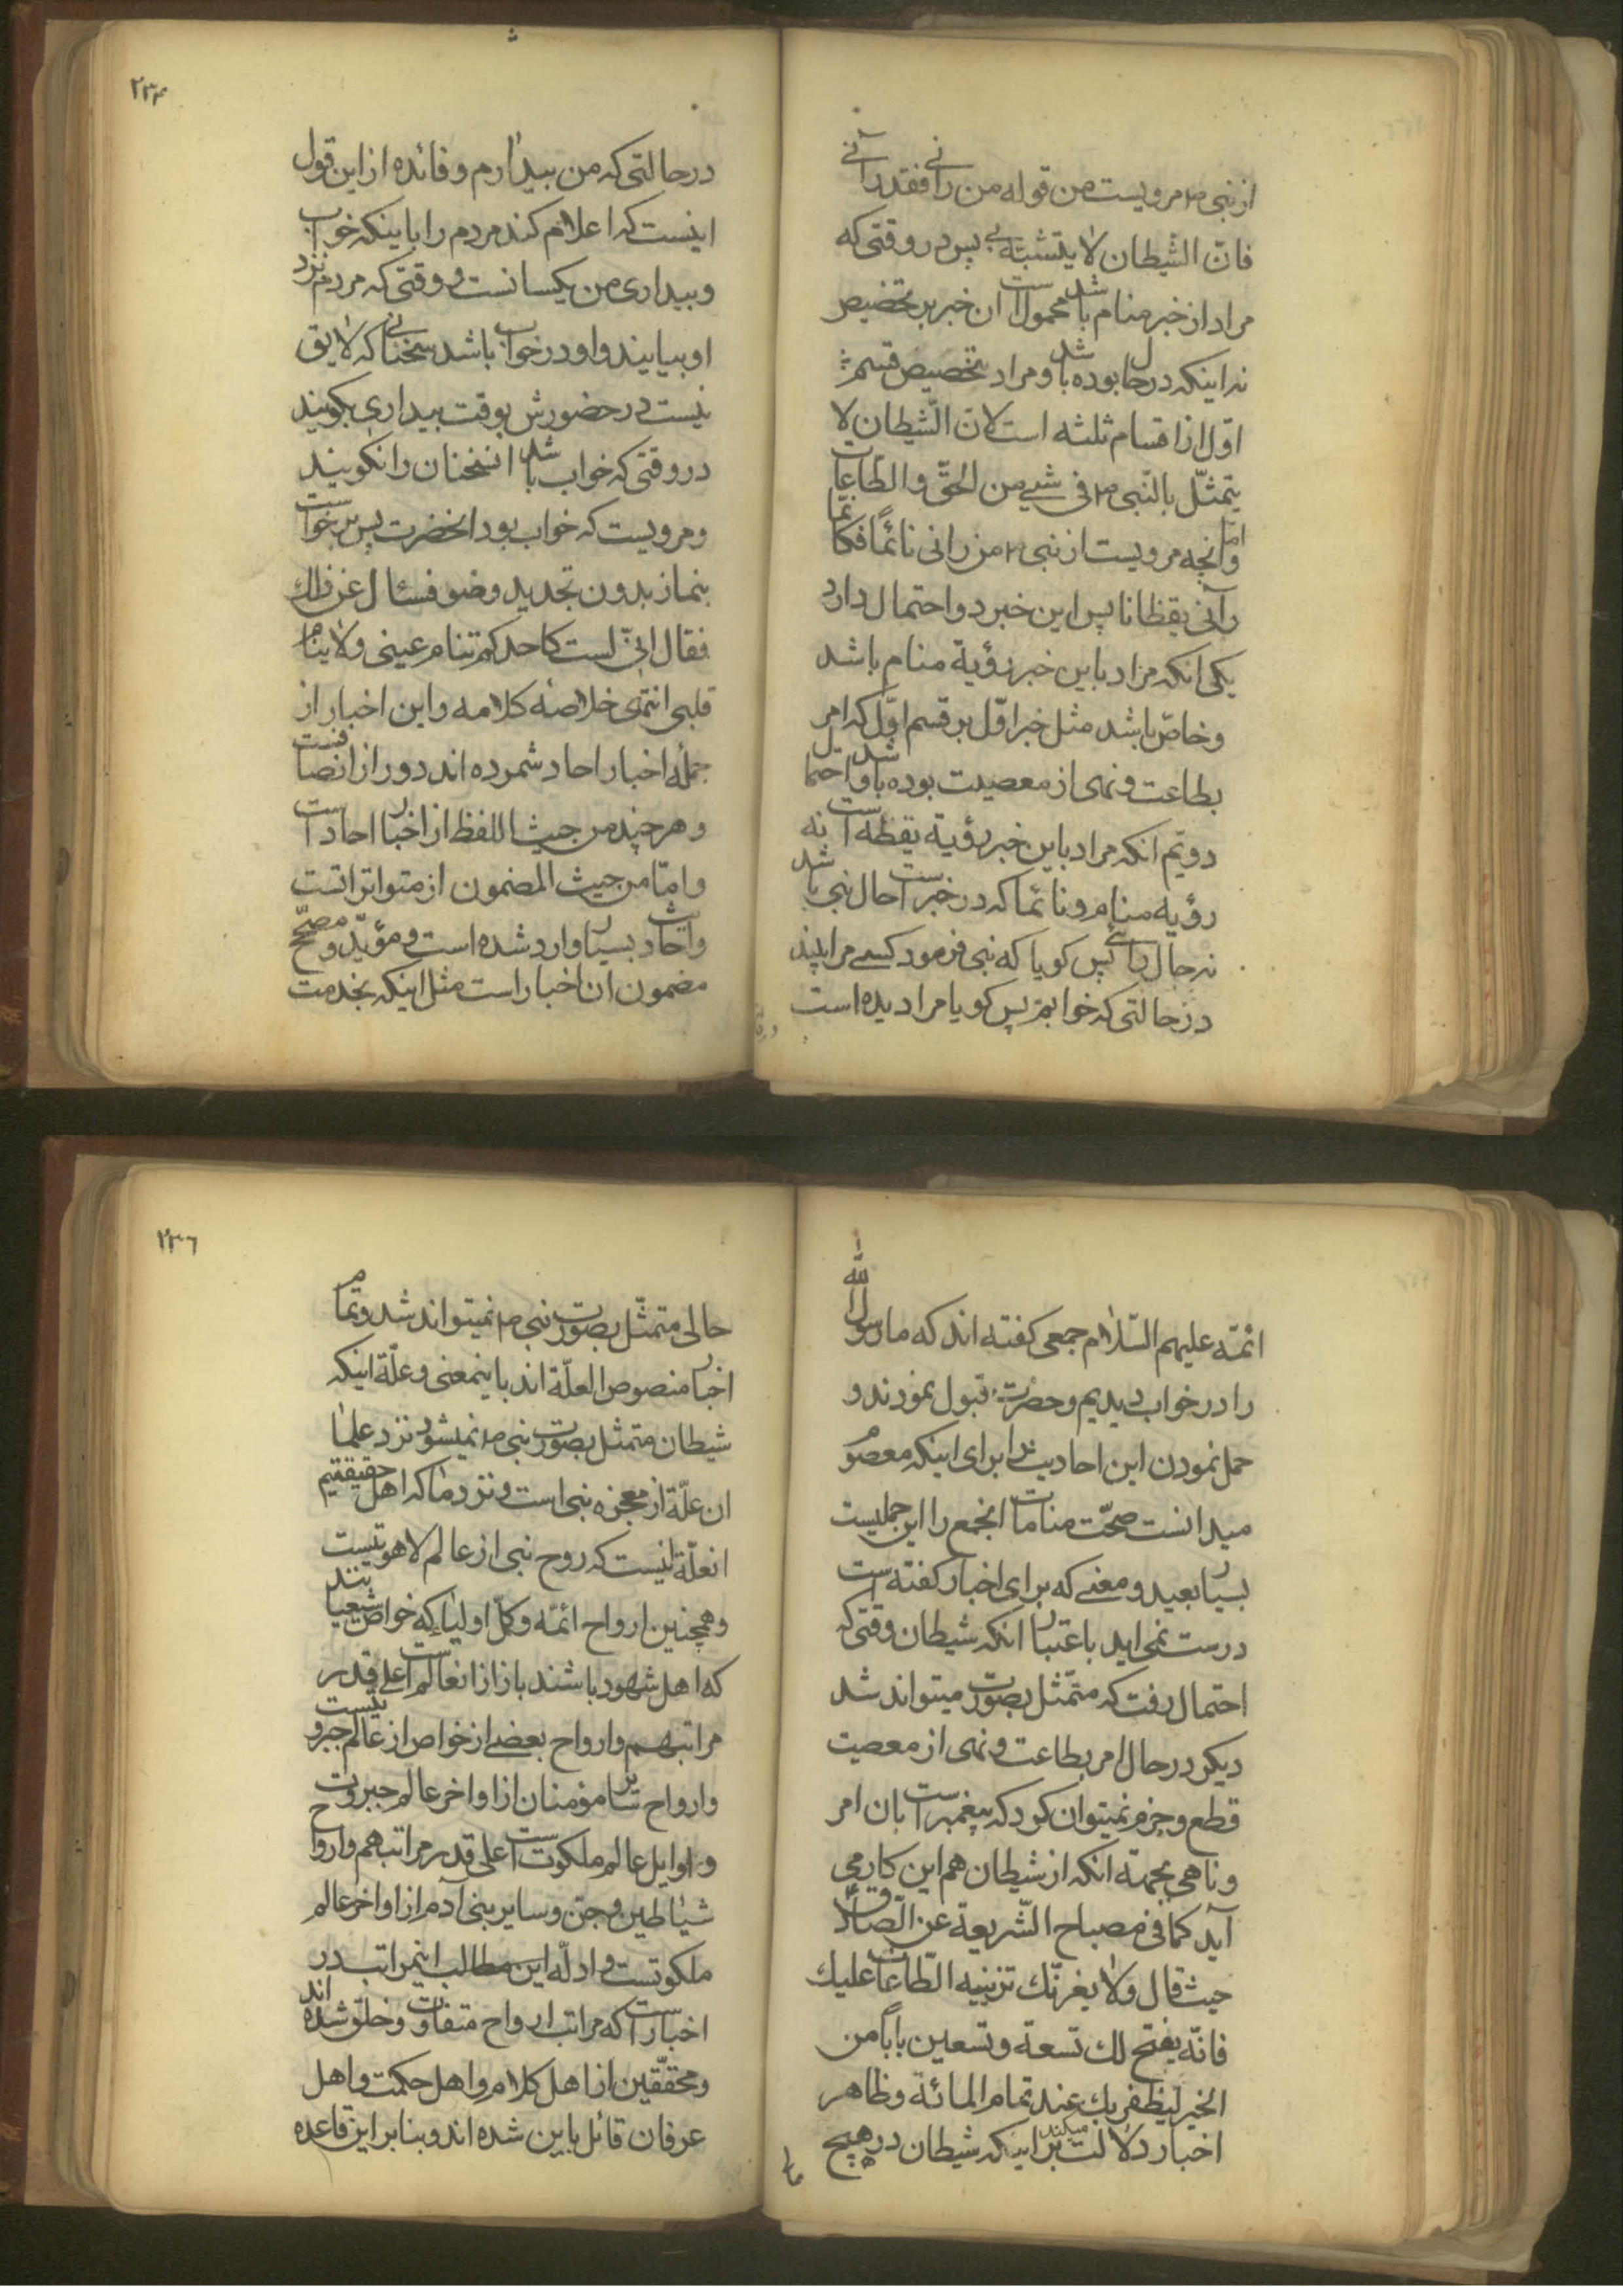 از نبی ص مرویست من قوله من رانی فقد رآنی
فانّ الشیطان لا یتشبّه بی پس در وقتی که
مراد از خبر منام باشد محمول است ان خبر بر تخصیص
نه اینکه در حال بوده باشد و مراد تخصیص قسم
اوّل از اقسام ثلثه است لانّ الشّیطان لا
یتمثّل بالنّبی ص فی شیء من الحقّ والطّاعات
وامّا انچه مرویست از نبی ص من رانی نائماً فکانّما
رآنی یقظانا پس این خبر دو احتمال دارد
یکی انکه مراد باین خبر رؤیة منام باشد
وخاصّ باشد مثل خبر اوّل بر قسم اوّل که امر
بطاعت و نهی از معصیت بوده باشد و احتمال
دویّم انکه مراد باین خبر رؤیة یقظه است نه
رؤیه منام و نائما که در خبر است حال نبی باشد
نه حال رائی پس کویا که نبی فرمود کسی مرا بیند
در حالتی که خوابم پس کویا مرا دیده است
۲۳۴
در حالتی که من بیدارم و فائده از این قول
اینست که اعلام کند مردم را باینکه خواب
و بیداری من یکسانست و وقتی که مردم نزد
او بیایند و او در خواب باشد سخنانی که لایق
نیست در حضورش بوقت بیداری بکویند
در وقتی که خواب باشد انسخنان را نکویند
و مرویست که خواب بود انحضرت پس برخواست
بنماز بدون تجدید وضو فسئال عن ذلك
فقال انّی لست کاحدکم تنام عینی ولا ینام
قلبی انتهی خلاصۀ کلامه و این اخبار از
جملۀ اخبار احاد شمرده اند دور از انصافست
و هر چند من حیث اللفظ از اخبار احاد است
و امّا من حیث المضمون از متواتراتست
واحادیث بسیار وارد شده است و مؤیّد و مصحّح
مضمون ان اخبار است مثل اینکه بخدمت
ائمّه علیهم السّلام جمعی کفته اند که ما رسول الله
را در خواب دیدیم و حضرت قبول نمودند و
حمل نمودن این احادیث را برای اینکه معصوم
میدانست صحّت منامات انجمع را این حملیست
بسیار بعید و معنی که برای اخبار کفته است
درست نمی اید باعتبار انکه شیطان وقتی که
احتمال رفت که متمّثل بصورت میتواند شد
دیکر در حال امر بطاعت و نهی از معصیت
قطع و جزم نمیتوان کرد که پیغمبر است بان امر
و ناهی بجهتۀ انکه از شیطان هم این کار می
آید کما فی مصباح الشّریعة عن الصّادق
حیث قال ولا یغرنّك تزیینه الطّاعات علیك
فانّه یفتح لك تسعة و تسعین باباً من
الخیر لیظفر بك عند تمام المائة و ظاهر
اخبار دلالت میکند بر اینکه شیطان در هیچ
۲۳۶
حالی متمثّل بصورت نبی ص نمیتواند شد و تمام
اخبار منصوص العلّة اند باینمعنی و علّة اینکه
شیطان متمثل بصورت نبی ص نمیشود نزد علما
ان علّة از معجزه نبی است و نزد ما که اهل حقیقتیم
انعلّة اینست که روح نبی از عالم لاهوتیست
و همچنین ارواح ائمّه و کلّ اولیا که خواص شیعیانند
که اهل شهود باشند باز از انعالم است اعلی قدر
مراتبهم و ارواح بعضی از خواص از عالم جبروتیست
و ارواح سایر مؤمنان از اواخر عالم جبروت
و اوایل عالم ملکوت است اعلی قدر مراتبهم و ارواح
شیاطین و جن و سایر بنی آدم از اواخر عالم
ملکوتست و ادلّه این مطالب اینمراتب در
اخبار است که مراتب ارواح متفاوت و خلق شده اند
و محققّین از اهل کلام و اهل حکمت و اهل
عرفان قائل باین شده اند و بنابر این قاعده